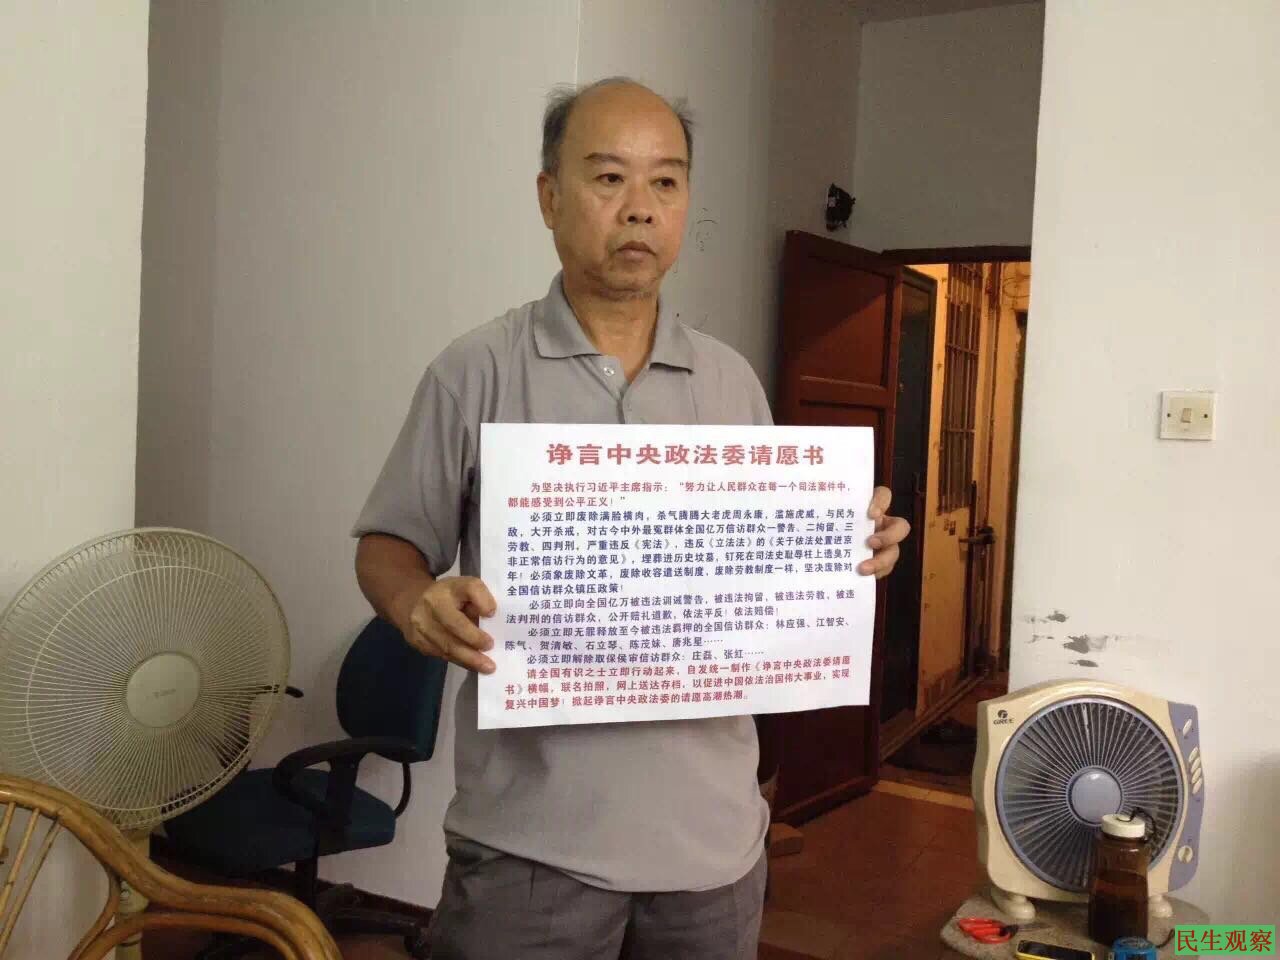 诤言中央政法委请愿书
为坚决执行习近平主席指示：“努力让人民群众在每一个司法案件中，
都能感受到公平正义！”
必须立即废除满脸横肉，杀气腾腾大老虎周永康，滥施虎威，与民为
敌，大开杀戒，对古今中外最冤群体全国亿万信访群众一警告、二拘留、三
劳教、四判刑，严重违反《宪法》，违反《立法法》的《关于依法处置进京
非正常信访行为的意见》，埋葬进历史坟墓，钉死在司法史耻辱柱上遗臭万
年！必须象废除文革，废除收容遣送制度，废除劳教制度一样，坚决废除对
全国信访群众镇压政策！
必须立即向全国亿万被违法训诫警告，被违法拘留、被违法劳教，被违
法判刑的信访群众，公开赔礼道歉，依法平反！依法赔偿！
必须立即无罪释放至今被违法羁押的全国信访群众：林应强、江智安、
陈气、贺清敏、石立琴、陈茂妹、唐兆星……
必须立即解除取保侯审信访群众：庄磊、张红……
请全国有识之士立即行动起来，自发统一制作《诤言中央政法委请愿
书》横幅，联名拍照，网上送达存档，以促进中国依法治国伟大事业，实现
复兴中国梦！掀起诤言中央政法委的请愿高潮热潮。
GREE
民生观察